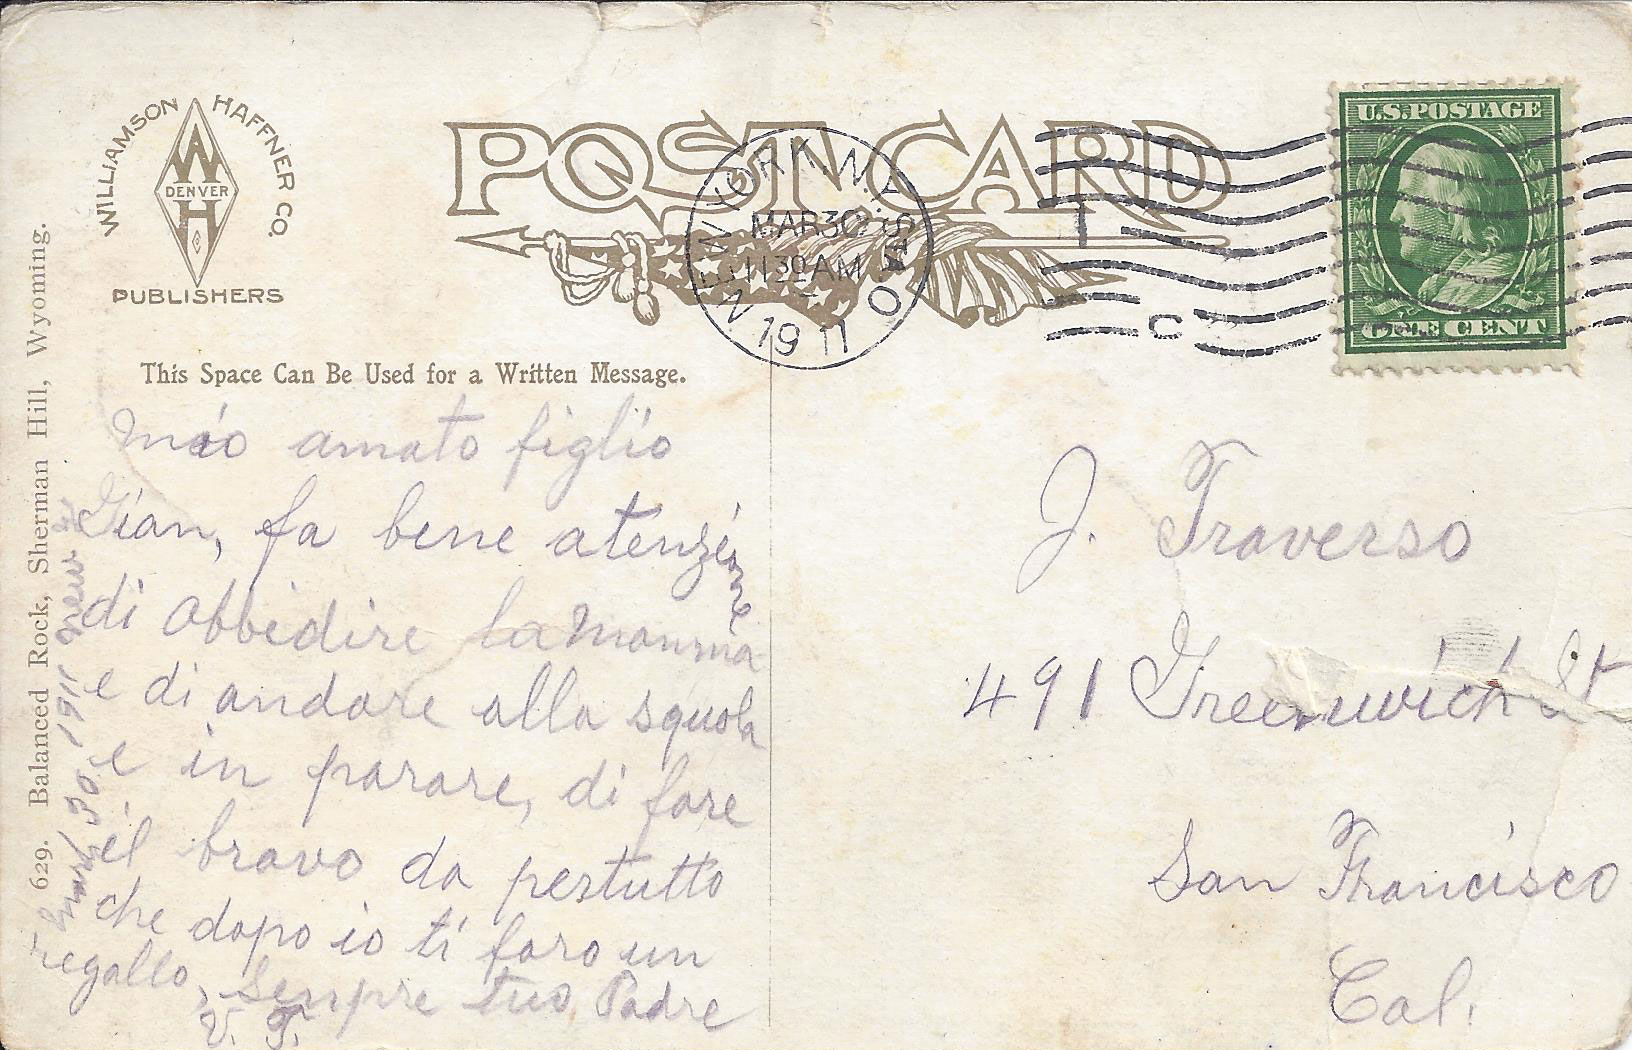 WILLIAMSON HAFFNER CO.
W
DENVER
H
PUBLISHERS
POST CARD
NEW YORK N.Y. STA O
MAR 30
11 30 AM
1911
C
U.S. POSTAGE
ONE CENT
This Space Can Be Used for a Written Message.
629. Balanced Rock, Sherman Hill, Wyoming.
mio amato figlio
Gian, fa bene atenzione
di obbidire la mamma
e di andare alla squola
e in parare, di fare
il bravo da pertutto
che dopo io ti faro un
regallo, Senpre tuo Padre
V. T.
30 1911
J. Traverso
491 Greenwich St
San Francisco
Cal.